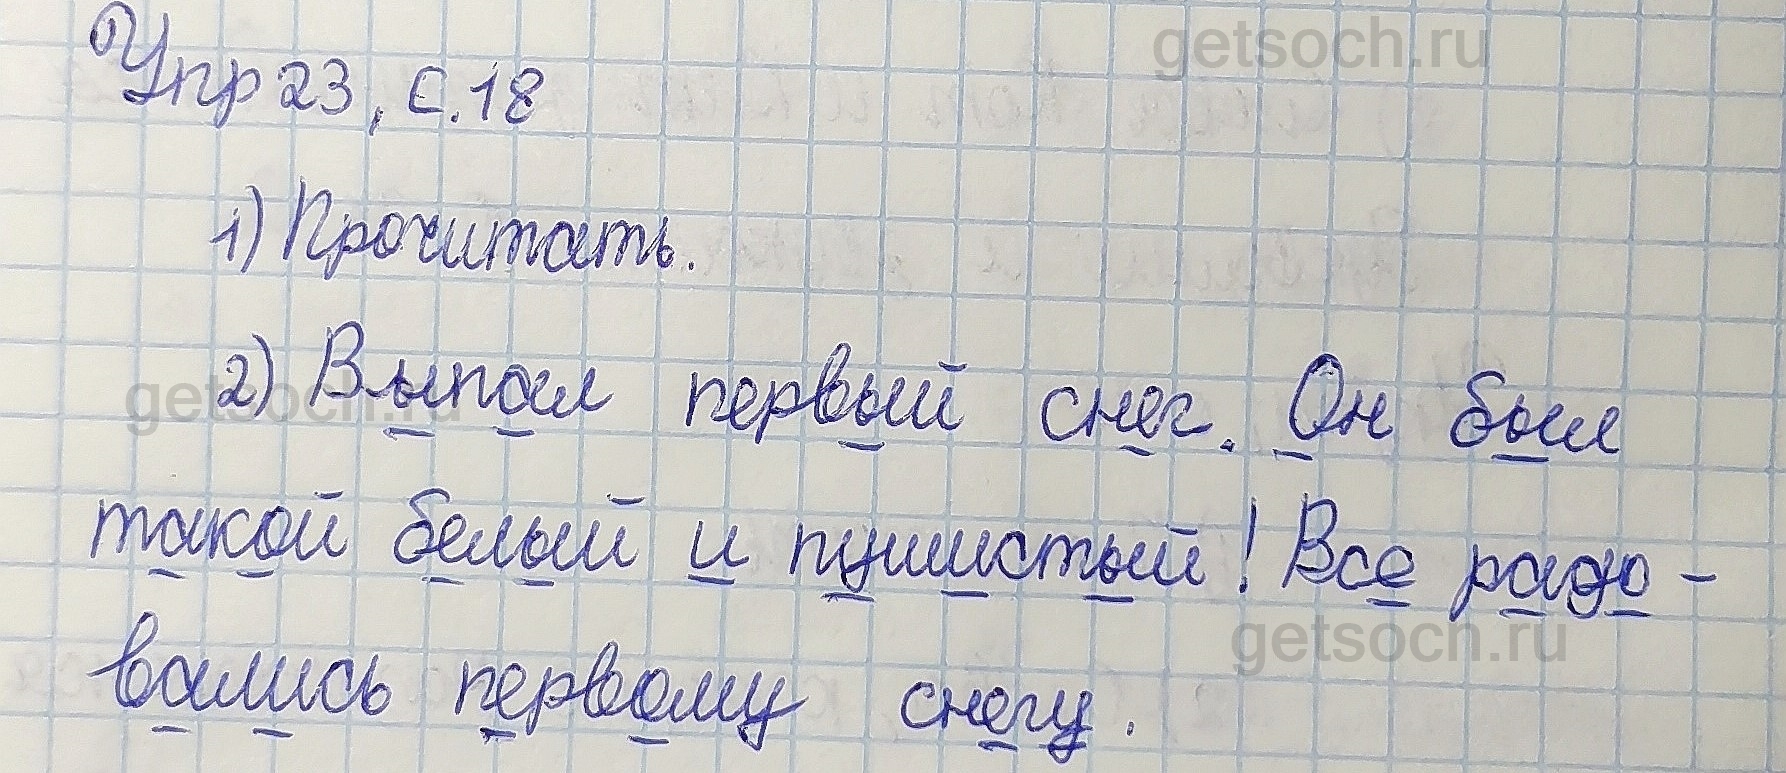 getsoch.ru
Упр 23, с. 18
1) Прочитать.
2) Выпал первый снег. Он был
getsoch.ru
такой белый и пушистый! Все радо-
getsoch.ru
вались первому снегу.